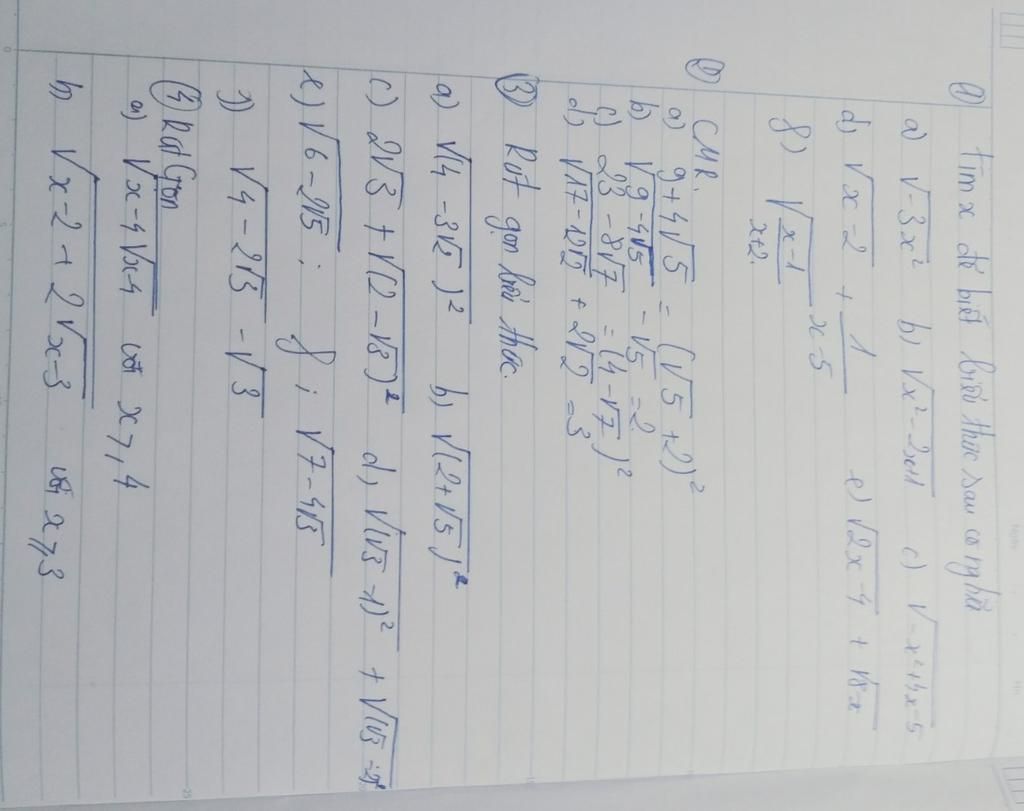 ① Tìm x để biết biểu thức sau có nghĩa
a) √-3x² b) √x²-2x+1 c) √-x²+4x-5
d, √x-2 + 1/x-5 e) √2x-4 + √8-x
g) √x-1/x+2
② CMR.
a) 9+4√5 = (√5+2)²
b) √9-4√5 - √5 = 2
c) 23-8√7 = (4-√7)²
d) √17-12√2 + 2√2 = 3
③ Rút gọn biểu thức.
a) √(4-3√2)² b) √(2+√5)²
c) 2√3 + √(2-√3)² d, √(√3-1)² + √(√3-2)²
e) √6-2√5 ; g; √7-4√3
√4-2√3 - √3
④ Rút Gọn
a) √x-4√x-4 với x ≥ 4
b) √x-2+2√x-3 với x ≥ 3